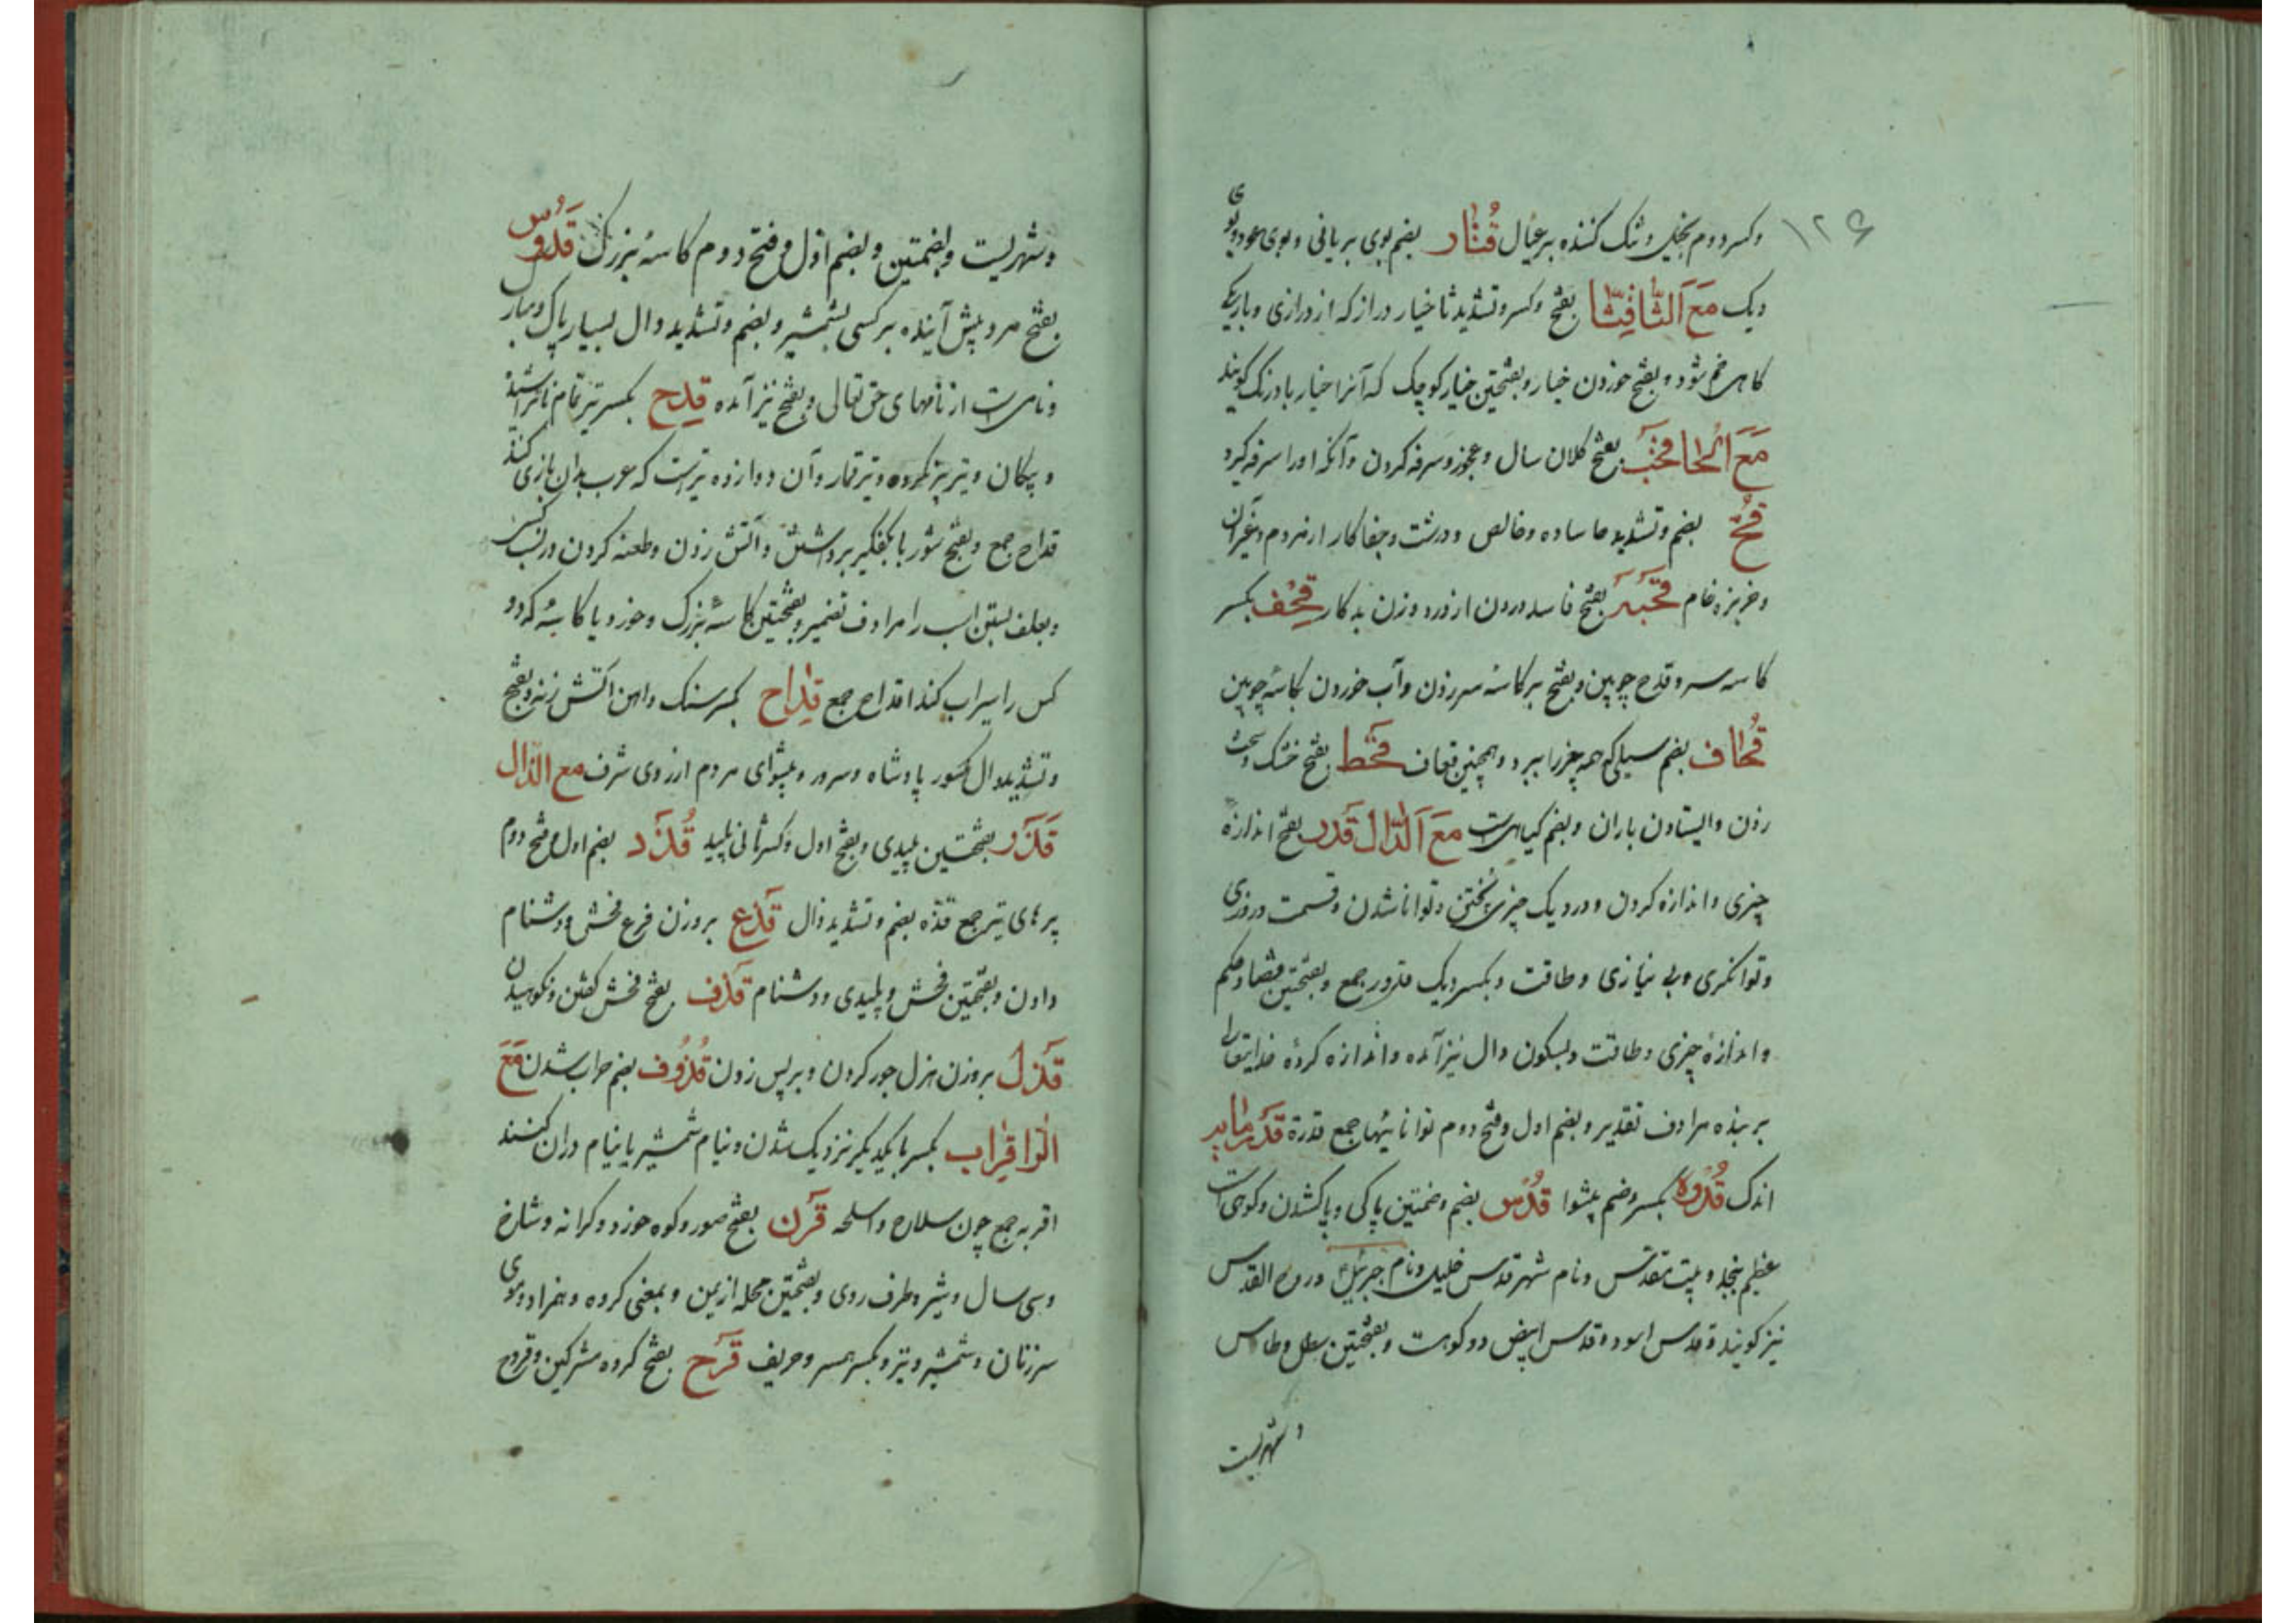 ۱۲۶
وکسر دوم بخیل و تنک کننده بر عیال قُتار بضم بوی بریانی و بوی عود و بوی
دیک مَعَ اَلثّا قِثّا بفتح وکسر وتشدید ثا خیار دراز که از درازی و باریکی
کاهی خم شود و بفتح خوردن خیار و بفتحتین خیار کوچک که آنرا خیار بادرنک کویند
مَعَ اَلحا قَحب بفتح کلان سال و عجوز و سرفه کردن و آنکه اورا سرفه کیرد
قُحّ بضم وتشدید حا ساده و خالص و درشت و جفا کار از مردم و غیر آن
و خربزهٔ خام قَحبَه بفتح فاسد درون از درد و زن بدکار قِحف بکسر
کاسه سر و قدح چوبین و بفتح بر کاسهٔ سر زدن و آب خوردن بکاسهٔ چوبین
قُحاف بضم سیلی که همه چیز را ببرد و همچنین قعاف قَحَط بفتح خشک و سخت
زدن و ایستادن باران و بضم کیاهیست مَعَ اَلدّال قَدر بفتح اندازهٔ
چیزی و اندازه کردن و در دیک چیزی پختن و توانا شدن و قسمت و روزی
و توانکری و بی نیازی و طاقت و بکسر دیک قدور جمع و بفتحتین قضا و حکم
و اندازهٔ چیزی و طاقت و بسکون دال نیز آمده و اندازه کردهٔ خدایتعالی
بر بنده مرادف تقدیر و بضم اول و فتح دوم توانائیها جمع قدرة قَدَر مایه
اندک قُدوَه بکسر و ضم پیشوا قُدُس بضم و ضمتین پاکی و پاک شدن و کوهی است
عظیم بنجد و بیت مقدّس و نام شهر قدس خلیل و نام جبرئیلؑ و روح القدس
نیز کویند و قدس اسود و قدس ابیض دو کوهست و بفتحتین سطل و طاس
و شهریست
و شهریست و بضمتین و بضم اوّل و فتح دوم کاسهٔ بزرک قَدُّوس
بفتح مرد پیش آینده بر کسی بشمشیر و بضم و تشدید دال بسیار پاک و مبارک
و نامیست از نامهای حق تعالی و بفتح نیز آمده قِدح بکسر تیر تمام ناتراشیده
و پیکان و تیر پر نکرده و تیر قمار و آن دوازده تیرست که عرب بدان بازی کنند
قداح جمع و بفتح شوربا بکفکیر برداشتن و آتش زدن و طعنه کردن در نسب کسی
و بعلف بستن اسب را مرادف تضمیر و بفتحتین کاسهٔ بزرک و خورد یا کاسهٔ که دو
کس را سیراب کند اقداح جمع قِداح بکسر سنک و آهن آتش زنه و بفتح
و تشدید دال مکسور پادشاه و سرور و پیشوای مردم از روی شرف مع الذّال
قَذَر بفتحتین پلیدی و بفتح اول و کسر ثانی پلید قُذَذ بضم اول و فتح دوم
پرهای تیر جمع قذه بضم و تشدید ذال قَذع بروزن فرع فحش و دشنام
دادن و بفتحتین فحش و پلیدی و دشنام قَذف بفتح فحش کفتن و نکوهیدن
قَذل بروزن هزل جور کردن و بر پس زدن قُذُوف بضم خراب شدن مَعَ
الرّا قِراب بکسر با یکدیکر نزدیک شدن و نیام شمشیر یا نیام دران کنند
اقربه جمع چون سلاح و اسلحه قَرن بفتح صور و کوه خورد و کرانه و شاخ
و سی سال و شیر و طرف روی و بفتحتین محله از یمن و بمعنی کروه و همزاد و موی
سر زنان و شمشیر و تیر و بکسر همسر و حریف قَرح بفتح کروه مشرکین و قروح